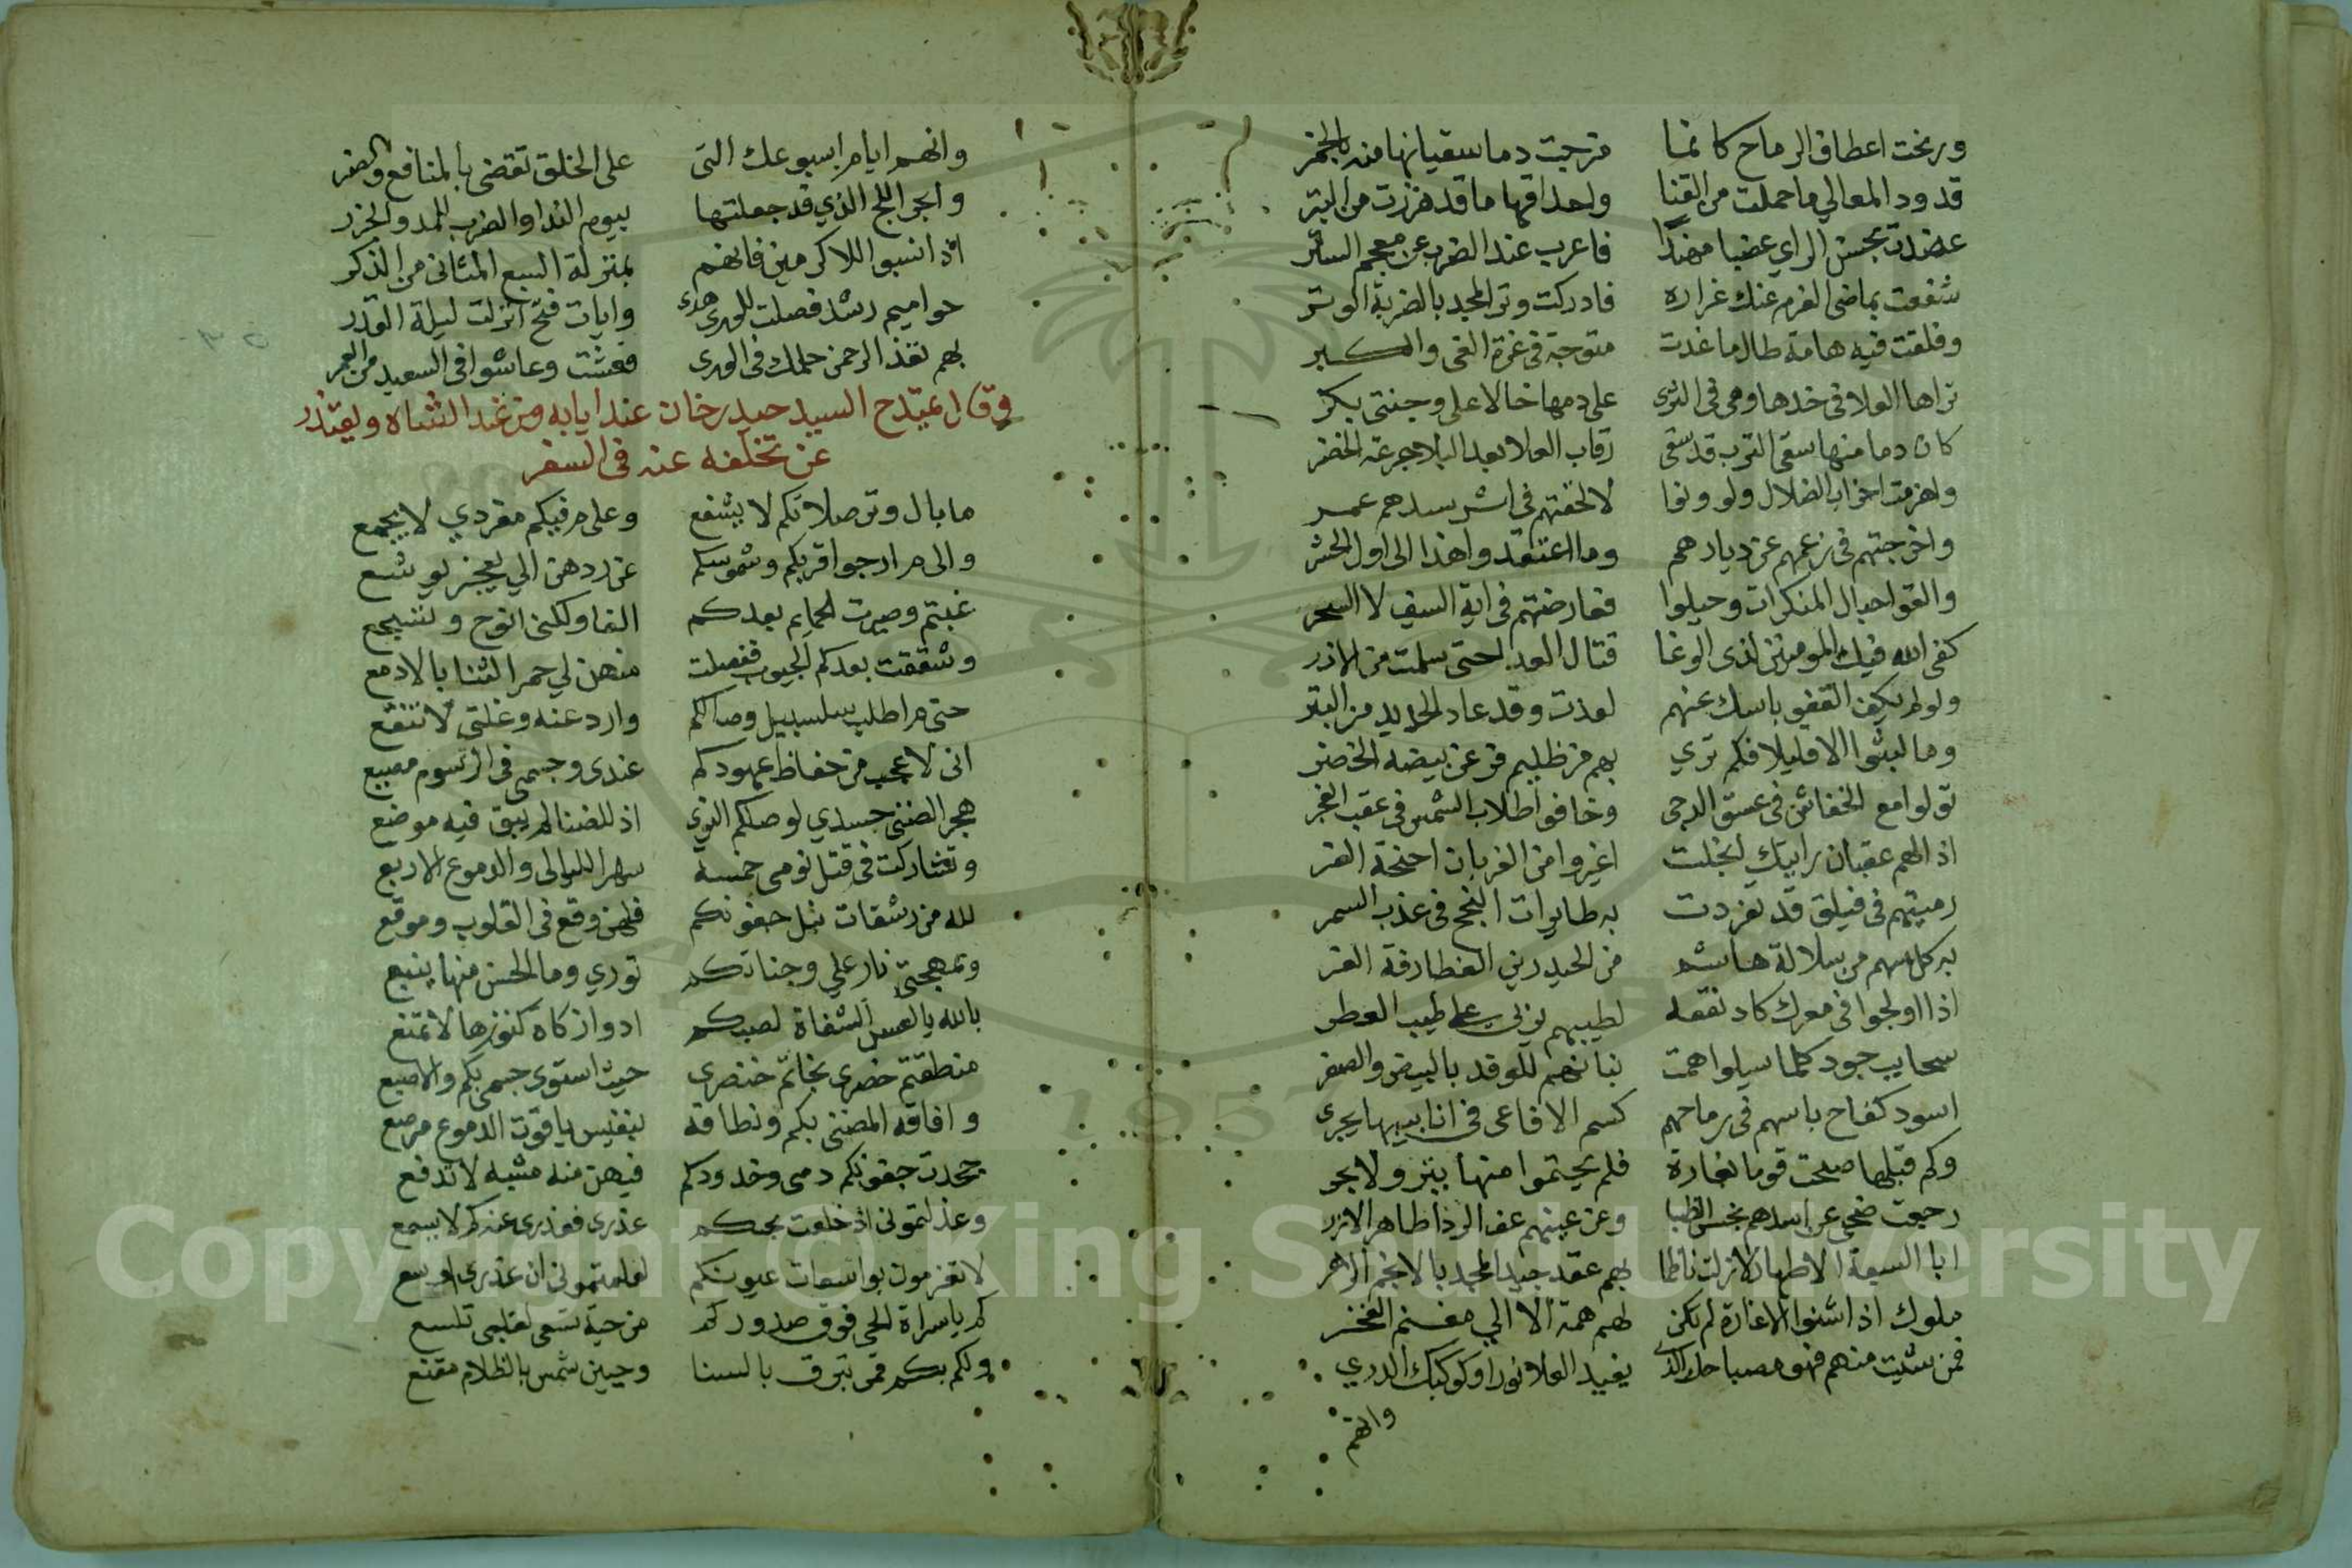 ورنحت اعطاف الرماح كانما مزجت دما سقيانها منه بالخمر
قدود المعالي ما حملت من القنا واحداقها ما قد هززت من البتر
عضدت بحسن الراي عضبا مهندا فاعرب عند الضرب عن معجم الستر
شفعت بماضي العزم عنك غراره فادركت وتر المجد بالضربة الوتر
وفلقت فيه هامة طال ما غدت متوجة في عزة الغي والكبر
تراها العلا في خدها وهي في الثرى على دمها خالا على وجنتي بكر
كان دما منها سقى الترب قد سقى رقاب العلا بعد البلا جرعة الخضر
واهزمت احزاب الضلال ولو ونوا لالحقتهم في اثر سدهم عمر
واخرجتهم في زعمهم عن ديارهم وما اعتقدوا هذا الى اول الحشر
والقوا حبال المنكرات وحيلوا فعارضتهم في اية السيف لا السحر
كفى الله فيك المومنين لذى الوغا قتال العدا حتى سلمت من الازر
ولو لم يكف القفو باسك عنهم لعذت وقد عاد الحديد من البتر
وما لبثوا الا قليلا فكم تري بهم من ظليم فر عن بيضه الخضر
تولوا مع الخفاش في غسق الدجى وخافوا طلاب الشمس في عقب الفجر
اذا الهم عقبان راياتك انجلت اغيروا من الغربان اجنحة الفر
رميتهم في فيلق قد تفردت به طايرات النجح في عذب السمر
به كل سهم من سلالة هاشم من الحيدريين الغطارفة الغر
اذا اولجوا في معرك كاد نقعه لطيبهم يزري على طيب العطر
سحايب جود كلما سيلوا همت بنانهم للوفد بالبيض والصفر
اسود كفاح باسهم في رماحهم كسم الافاعي في انابيبها يجري
وكم قبلها صبحت قوما بغارة فلم يحيتموا منها ببر ولا بحر
رجعت ضحى عن اسدهم بخس الظبا وعن عينهم عف الرذا طاهر الازر
ابا السبعة الاطهار لا زلت ناظما بهم عقد جيد المجد بالانجم الزهر
ملوك اذا شنوا الاغارة لم تكن لهم همة الا الي مغنم الفخر
فمن شيت منهم فهو مصباحك الذي يفيد العلا نورا وكوكبك الدري
وانهم
وانهم ايام اسبوعك التي على الخلق تقضي بالمنافع والضر
وابحر اللج الذي قد جعلتها بيوم الندا والضرب للمد والجزر
اذا نسبوا للاكرمين فانهم بمنزلة السبع المثاني من الذكر
حواميم رشد فصلت للورى هدى وايات فتح انزلت ليلة القدر
بهم نفذ الرحمن حكمك في الورى فعشت وعاشوا في السعيد من العمر
وقال يمتدح السيد حيدر خان عند ايابه من عند الشاه ويعتذر
عن تخلفه عنه في السفر
ما بال وتر صلاتكم لا يشفع وعلى م فيكم مفردي لا يجمع
والى م ارجوا قربكم وشموسكم عن ردهن الي يعجز يوشع
غبتم وصيرت الحمايم بعدكم الفا ولكني انوح وتسجع
وشققت بعدكم الجيوب ففصلت منهن لي حمر الثنا بالادمع
حتى م اطلب سلسبيل وصالكم وارد عنه وغلتي لا تنقع
اني لاعجب من حفاظ عهودكم عندي وجسمي في الرسوم مضيع
هجر الضنى جسدي لوصلكم النوي اذ للضنا لم يبق فيه موضع
وتشاركت في قتل نومي خمسة سهر الليالي والدموع الاربع
لله من رشقات نبل جفونكم فلهن وقع في القلوب وموقع
وبمهجتي نار على وجناتكم توري وما الحسن منها ينبع
بالله يا لعس الشفاة لصبكم ادوا زكاة كنوزها لا تمنع
منطقتم خصري بخاتم خنصري حيث استوى جسمي بكم والاصبع
وافاقه المضنى بكم ونطاقه بنفيس ياقوت الدموع مرصع
جحدت جفونكم دمي وخدودكم فيهن منه مشبه لا تدفع
وعذلتموني اذ خلعت بحبكم عذري فعذري عندكم لا يسمع
لا تغزموت بواسعات عيونكم لعلمتموني ان عذري اوسع
كم يا سراة الحي فوق صدوركم من حية تسعى لقلبي تلسع
ولكم بكم قمر تبرق بالسنا وجبين شمس بالظلام مقنع